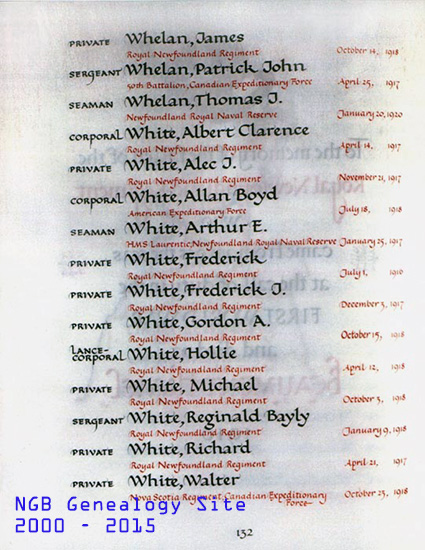 PRIVATE Whelan, James
Royal Newfoundland Regiment October 14, 1918
SERGEANT Whelan, Patrick John
50th Battalion, Canadian Expeditionary Force April 25, 1917
SEAMAN Whelan, Thomas J.
Newfoundland Royal Naval Reserve January 20, 1920
CORPORAL White, Albert Clarence
Royal Newfoundland Regiment April 14, 1917
PRIVATE White, Alec J.
Royal Newfoundland Regiment November 21, 1917
CORPORAL White, Allan Boyd
American Expeditionary Force July 18, 1918
SEAMAN White, Arthur E.
HMS Laurentic, Newfoundland Royal Naval Reserve January 25, 1917
PRIVATE White, Frederick
Royal Newfoundland Regiment July 1, 1916
PRIVATE White, Frederick J.
Royal Newfoundland Regiment December 3, 1917
PRIVATE White, Gordon A.
Royal Newfoundland Regiment October 15, 1918
LANCE-
CORPORAL White, Hollie
Royal Newfoundland Regiment April 12, 1918
PRIVATE White, Michael
Royal Newfoundland Regiment October 5, 1918
SERGEANT White, Reginald Bayly
Royal Newfoundland Regiment January 9, 1918
PRIVATE White, Richard
Royal Newfoundland Regiment April 21, 1917
PRIVATE White, Walter
Nova Scotia Regiment, Canadian Expeditionary October 23, 1918
Force
NGB Genealogy Site
2000 - 2015
132